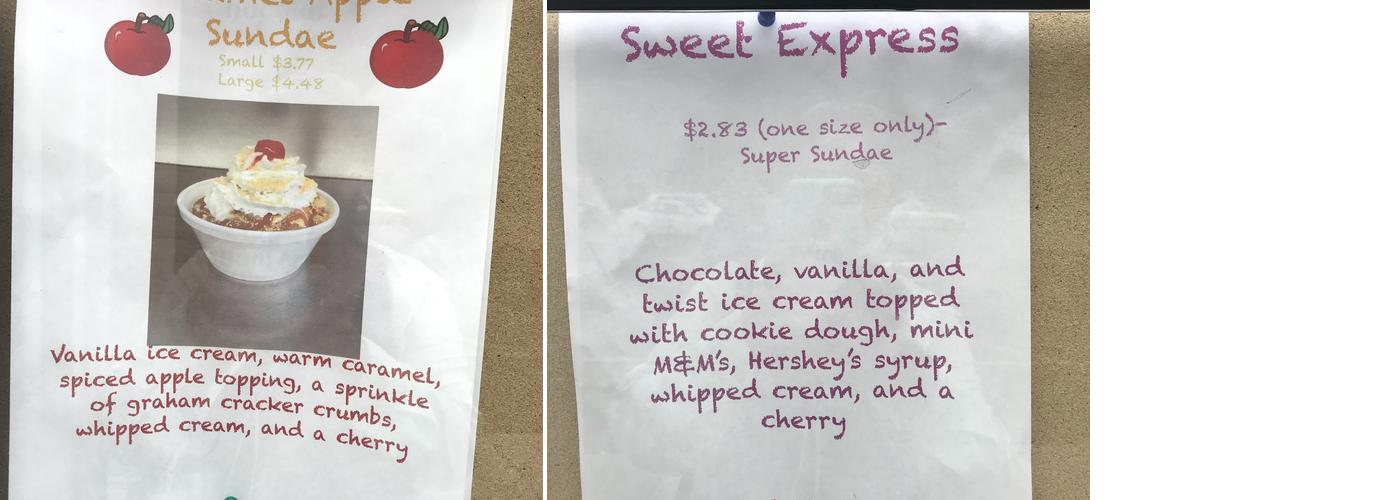 Apple
Sundae
Small $3.77
Large $4.48
Vanilla ice cream, warm caramel,
spiced apple topping, a sprinkle
of graham cracker crumbs,
whipped cream, and a cherry
Sweet Express
$2.83 (one size only)-
Super Sundae
Chocolate, vanilla, and
twist ice cream topped
with cookie dough, mini
M&M's, Hershey's syrup,
whipped cream, and a
cherry